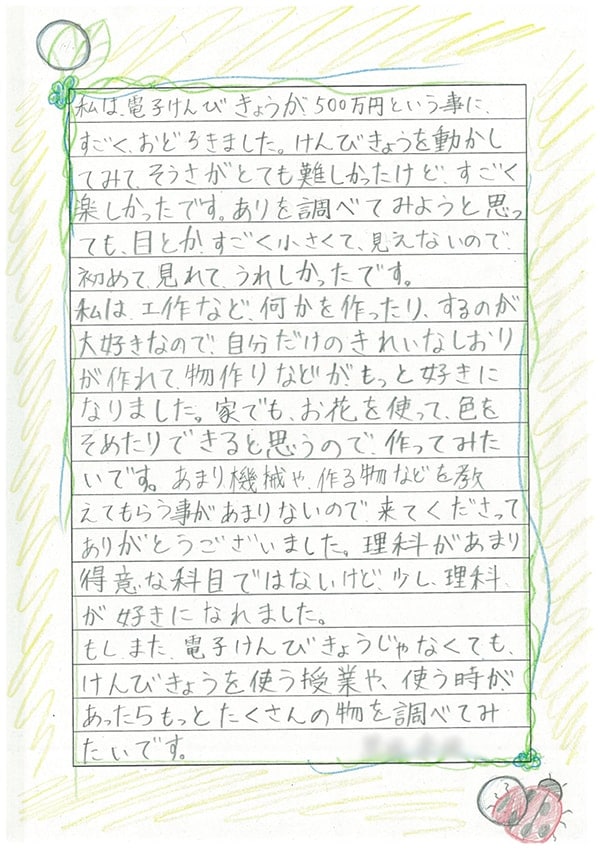 私は、電子けんびきょうが、500万円という事に、
すごく、おどろきました。けんびきょうを動かし
てみて、そうさがとても難しかったけど、すごく
楽しかったです。ありを調べてみようと思っ
ても、目とか、すごく小さくて、見えないので、
初めて、見れて、うれしかったです。
私は、工作など、何かを作ったり、するのが
大好きなので、自分だけのきれいなしおり
が作れて、物作りなどが、もっと好きに
なりました。家でも、お花を使って、色を
そめたりできると思うので、作ってみた
いです。あまり機械や、作る物などを教
えてもらう事があまりないので、来てくださって
ありがとうございました。理科があまり
得意な科目ではないけど、少し、理科、
が好きになれました。
もし、また、電子けんびきょうじゃなくても、
けんびきょうを使う授業や、使う時が、
あったらもっとたくさんの物を調べてみ
たいです。